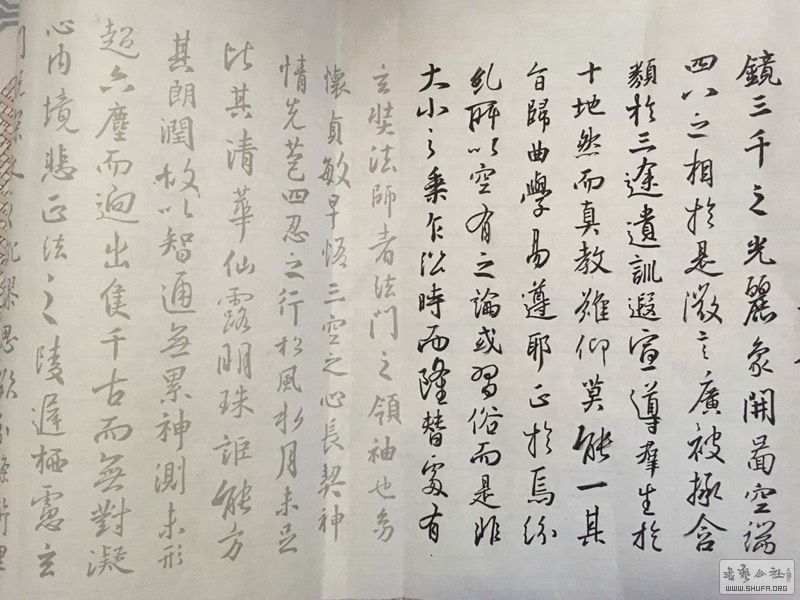 鏡三千之光麗象開圖空端
四八之相於是微言廣被拯含
類於三途遺訓遐宣導群生於
十地然而真教難仰莫能一其
旨歸曲學易遵耶正於焉紛
糺所以空有之論或習俗而是非
大小之乘乍沿時而隆替有
玄奘法師者法門之領袖也幼
懷貞敏早悟三空之心長契神
情先苞四忍之行松風水月未足
比其清華仙露明珠詎能方
其朗潤故以智通無累神測未形
超六塵而迥出隻千古而無對凝
心內境悲正法之陵遲栖慮玄
門
書藝公社
WWW.SHUFA.ORG